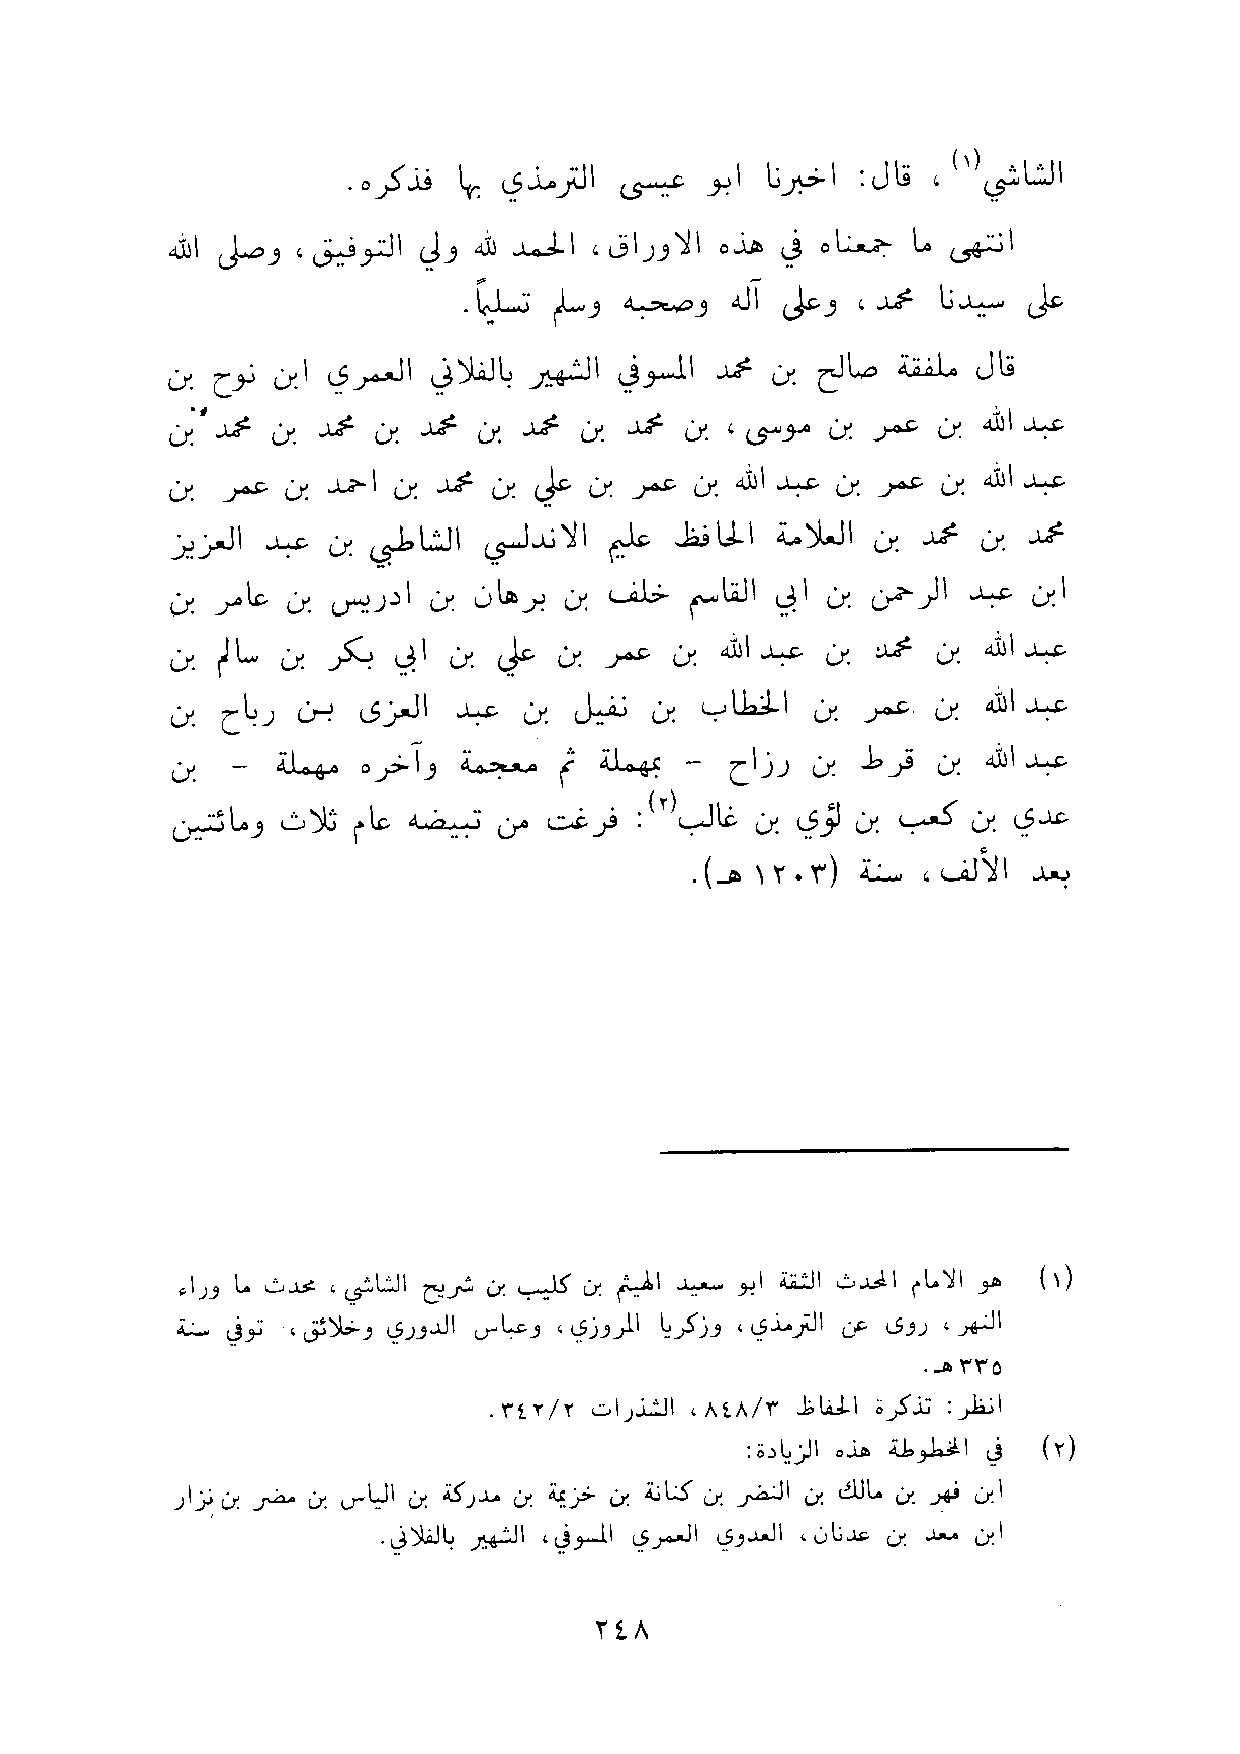 الشاشي(١) ، قال: اخبرنا ابو عيسى الترمذي بها فذكره.
انتهى ما جمعناه في هذه الاوراق ، الحمد لله ولي التوفيق ، وصلى الله
على سيدنا محمد ، وعلى آله وصحبه وسلم تسليماً.
قال ملفقة صالح بن محمد المسوفي الشهير بالفلاني العمري ابن نوح بن
عبد الله بن عمر بن موسى ، بن محمد بن محمد بن محمد بن محمد بن محمد بن
عبد الله بن عمر بن عبد الله بن عمر بن علي بن محمد بن احمد بن عمر بن
محمد بن محمد بن العلامة الحافظ عليم الاندلسي الشاطبي بن عبد العزيز
ابن عبد الرحمن بن ابي القاسم خلف بن برهان بن ادريس بن عامر بن
عبد الله بن محمد بن عبد الله بن عمر بن علي بن ابي بكر بن سالم بن
عبد الله بن عمر بن الخطاب بن نفيل بن عبد العزى بن رباح بن
عبد الله بن قرط بن رزاح - بمهملة ثم معجمة وآخره مهملة - بن
عدي بن كعب بن لؤي بن غالب(٢): فرغت من تبيضه عام ثلاث ومائتين
بعد الألف ، سنة (١٢٠٣ هـ).
(١) هو الامام المحدث الثقة ابو سعيد الهيثم بن كليب بن شريح الشاشي ، محدث ما وراء
النهر ، روى عن الترمذي ، وزكريا المروزي ، وعباس الدوري وخلائق ، توفي سنة
٣٣٥ هـ.
انظر: تذكرة الحفاظ ٨٤٨/٣ ، الشذرات ٣٤٢/٢.
(٢) في المخطوطة هذه الزيادة:
ابن فهر بن مالك بن النضر بن كنانة بن خزيمة بن مدركة بن الياس بن مضر بن نزار
ابن معد بن عدنان ، العدوي العمري المسوفي ، الشهير بالفلاني.
٢٤٨